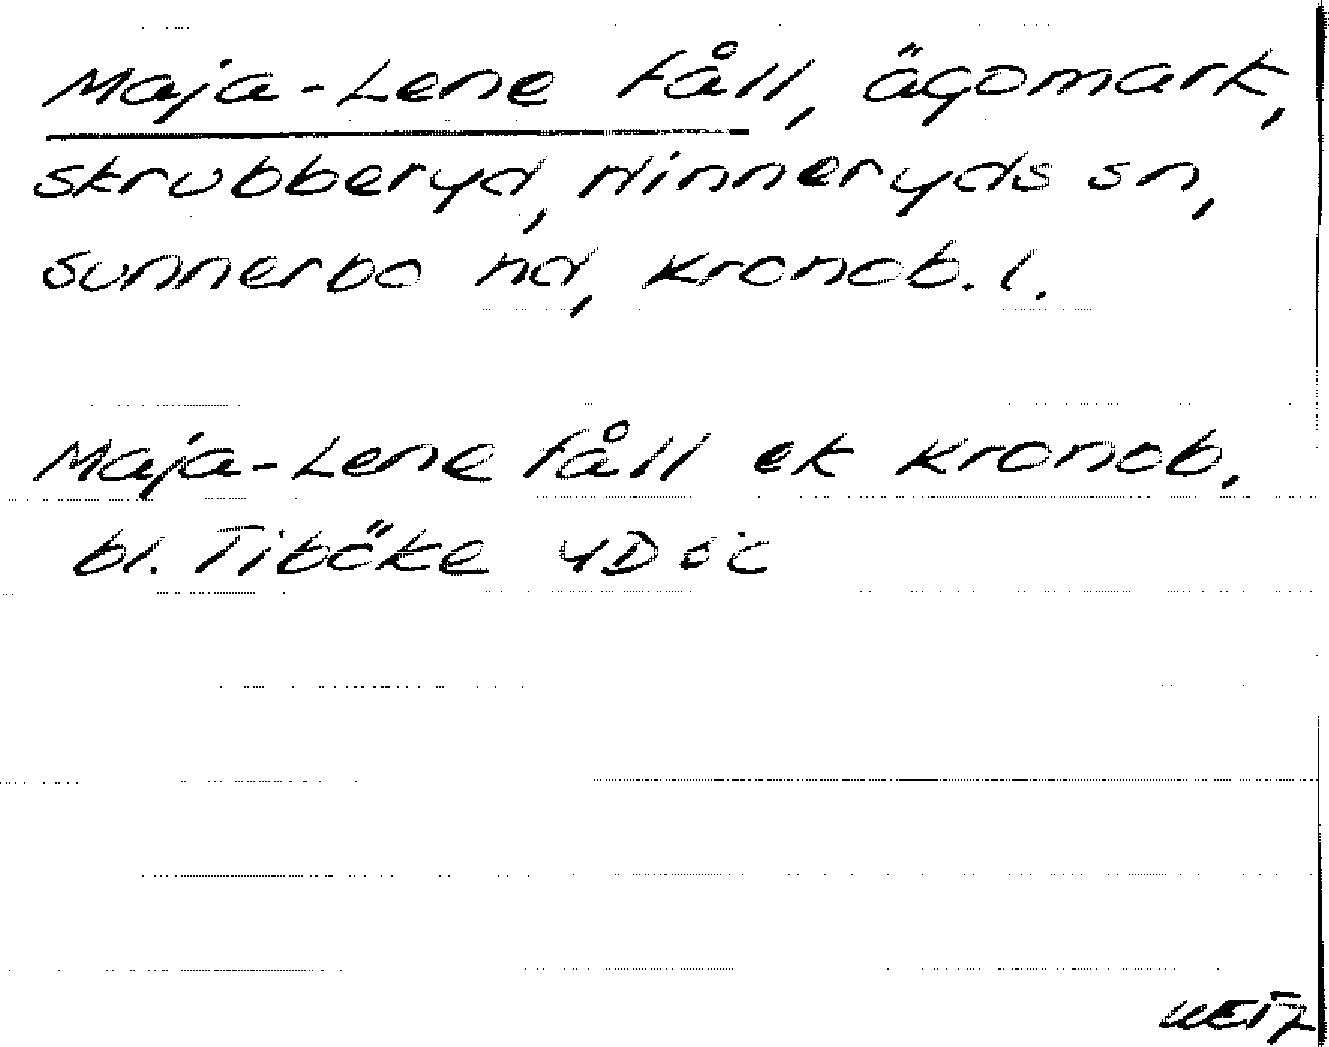 Maja-Lene fåll, ägomark,
Skrubberyd, Hinneryds sn,
Sunnerbo hd, Kronob. l.
Maja-Lene fåll ek Kronob.
bl. Tiböke 4D öc